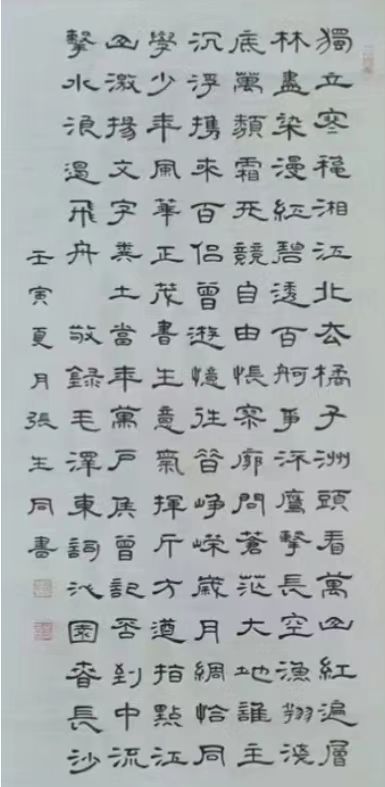 獨立寒穐湘江北去橘子洲頭看萬山紅遍層
林盡染漫江碧透百舸爭流鷹擊長空漁翔淺
底萬類霜天競自由悵寥廓問蒼茫大地誰主
沉浮携來百侶曾遊憶往昔崢嶸歲月稠恰同
學少年風華正茂書生意氣揮斥方遒指點江
山激揚文字糞土當年萬戶侯曾記否到中流
擊水浪遏飛舟 敬録毛澤東詞沁園春長沙
壬寅夏月張生同書